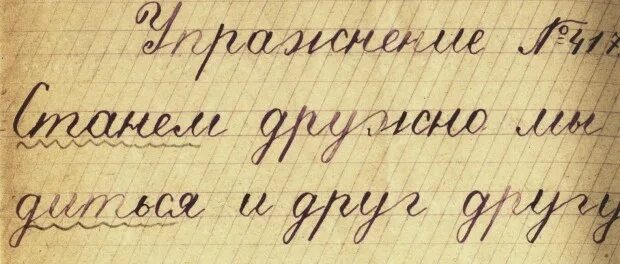 Упражнение №417
Станем дружно мы
диться и друг другу